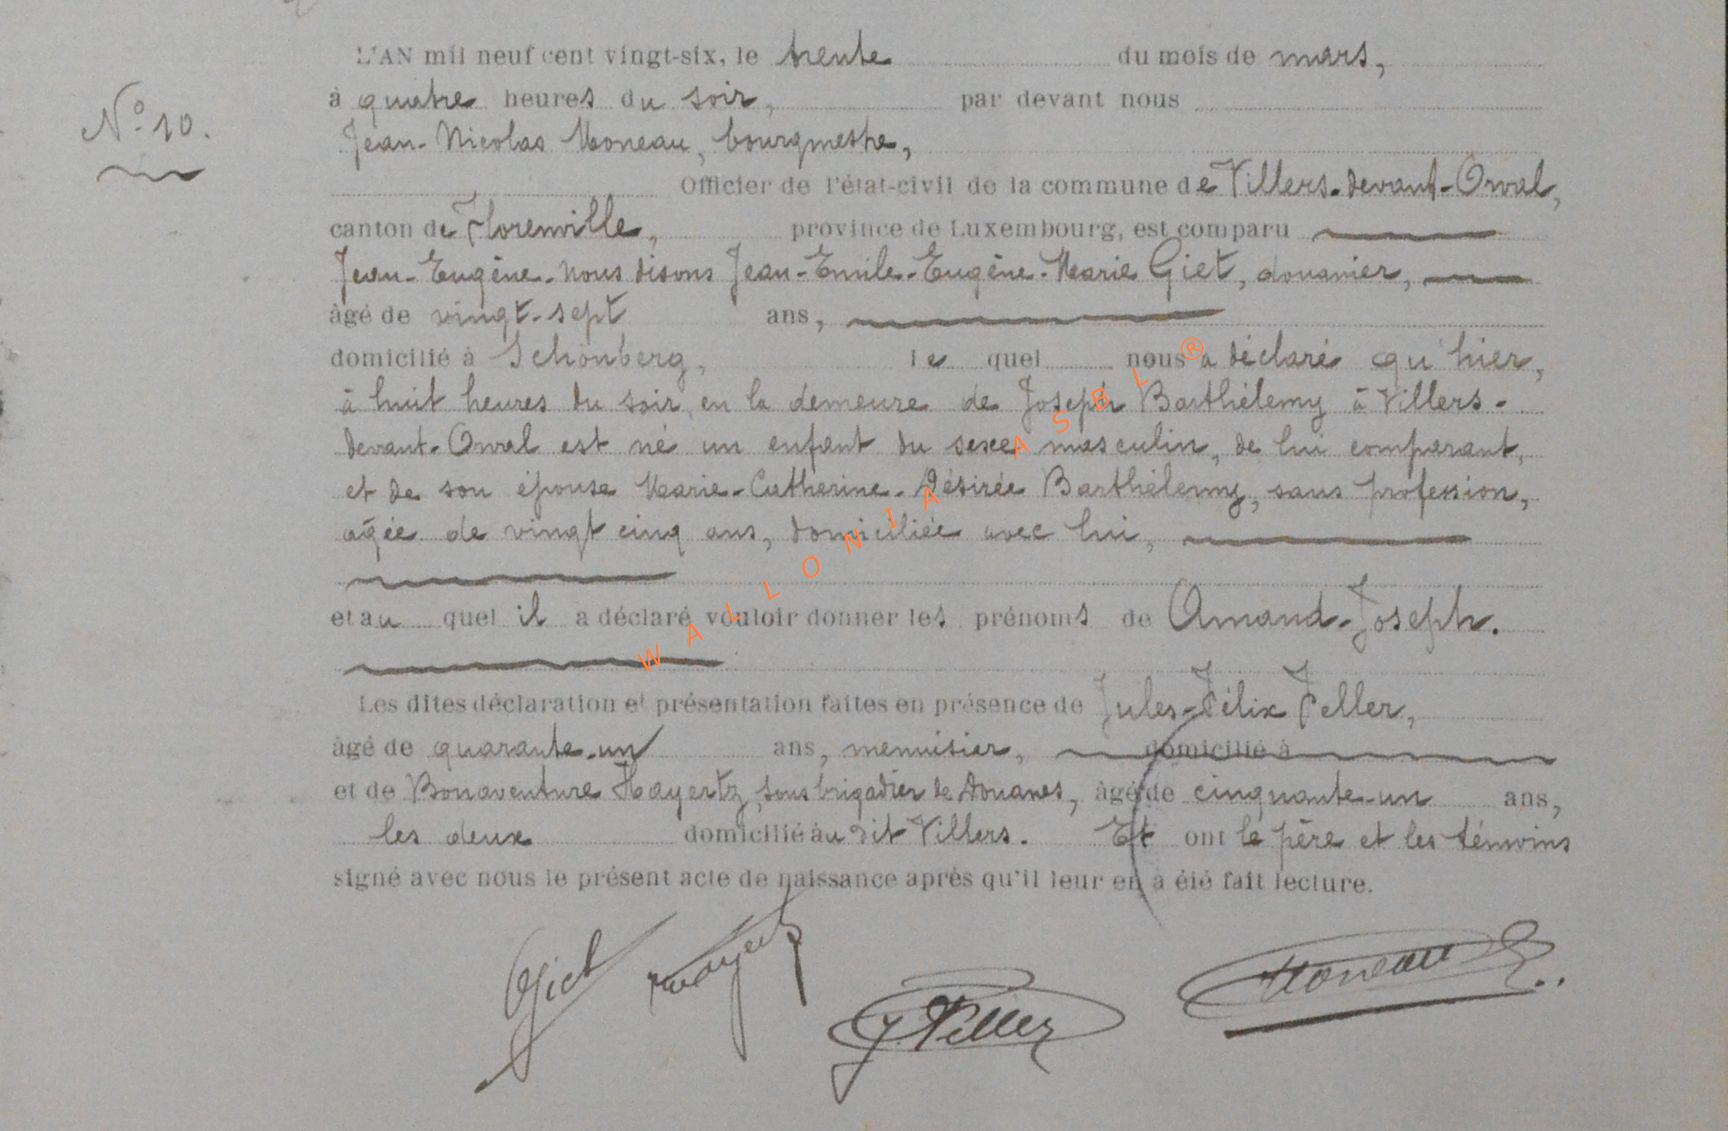 L'AN mil neuf cent vingt-six, le trente du mois de mars,
à quatre heures du soir, par devant nous
N° 10.
Jean-Nicolas Moneau, bourgmestre,
Officier de l'état-civil de la commune de Villers-devant-Orval,
canton de Florenville, province de Luxembourg, est comparu
Jean-Eugène-nous disons Jean-Emile-Eugène-Marie Giet, douanier,
âgé de vingt-sept ans,
domicilié à Schönberg, le quel nous a déclaré qu'hier,
à huit heures du soir, en la demeure de Joseph Barthélemy à Villers-
devant-Orval est né un enfant du sexe masculin, de lui comparant,
et de son épouse Marie-Catherine-Désirée Barthélemy, sans profession,
âgée de vingt cinq ans, domiciliée avec lui,
et au quel il a déclaré vouloir donner les prénoms de Amand-Joseph.
Les dites déclaration et présentation faites en présence de Jules-Félix Feller,
âgé de quarante-un ans, menuisier, domicilié à
et de Bonaventure Hayertz, sous brigadier de Douanes, âgé de cinquante-un ans,
les deux domicilié au dit Villers. Et ont le père et les témoins
signé avec nous le présent acte de naissance après qu'il leur en a été fait lecture.
Giet Hayertz J. Feller Moneau
WALLONIA ASBL ®